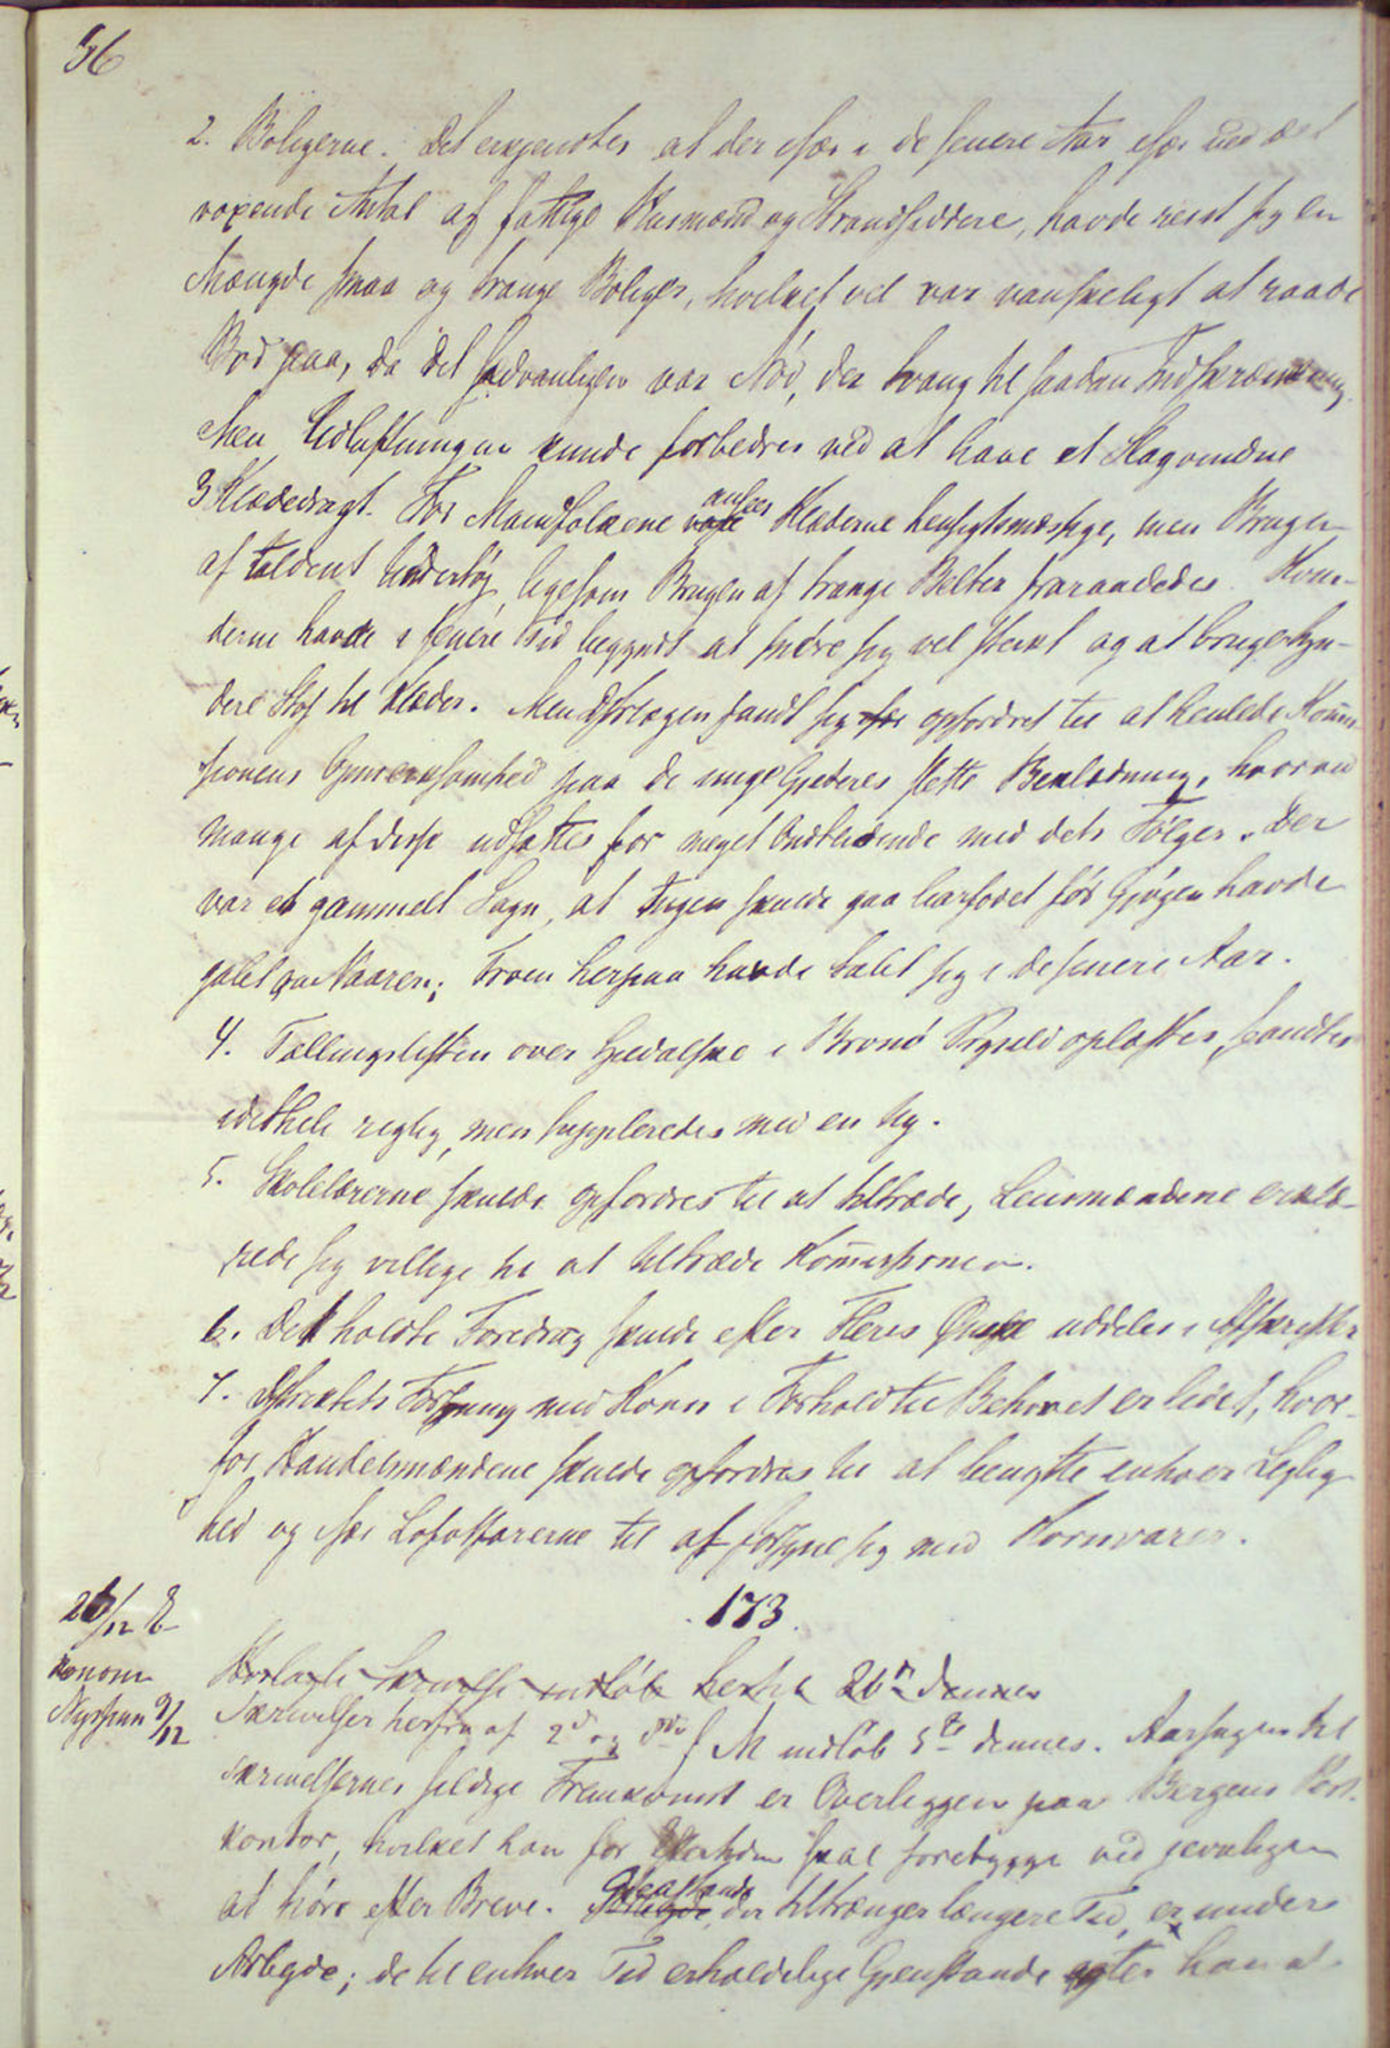 56
2. Boligerne. Det erkjendtes at der især i de senere Aar især ved det
voxende Antal af fattige Husmænd og Strandsiddere, havde reist sig en
Mængde smaa og trange Boliger, hvilket vel var vanskeligt at raade
Bod paa, da det sædvanligen var Nød, der tvang til saadan Indskrænkning.
Men Udluftningen kunde forbedres ved at have et
3 Klædedragt. For Mandfolkene vare ansees Klæderne hensigtsmæssige, men Brugen
af uldent Undertøj, ligesom Brugen af trange Belter fraraadedes. Kvin-
derne havde i senere Tid begyndt at snøre sig vel sterkt og at bruge tyn-
dere Stof til Klæder. Men Distrlægen fandt sig især opfordret til at henlede Kommis-
sionens Opmerksomhed paa de unge Gjeteres slette Beklædning, hvorved
mange af disse udsættes for meget Ondtlidende med dets Følger. Der
var et gammelt Sagn, at Ingen skulde gaa barfodet før Gjøgen havde
galet om Vaaren; Troen herpaa havde tabt sig i de senere Aar.
4. Tællingslisten over Spedalske i Brønø Prgjeld oplæstes, fandtes
idethele rigtig, men suppleredes med en Ny.
5. Skolelærerne skulde opfordres til at tiltræde, Lensmændene erklæ-
rede sig villige til at tiltræde Kommissionen.
6. Det holdte Foredrag skulde efter Fleres Ønske uddeles i Afskrifter
7. Distriktets Forsyning med Korn i Forhold til Behovet er lidet, hvor-
for Handelsmændene skulde opfordres til at benytte enhver Leilig
hed og især Lofotfarerne til at forsyne sig med Kornvarer.
173.
26/12 E
konom
Nyssum 9/12
Skrivelse indløb hertil 26n dennes
Skrivelser herfra af 2d og 8de f M indløb 5te dennes. Aarsagen til
Skrivelsernes sildige Fremkomst er Overliggen paa Bergens Post-
kontor, hvilket han for Eftertiden skal forebygge ved jevnligen
at høre efter Breve. Gjenstande, der tiltrænger længere Tid, er under
Arbeide; de til enhver Tid erholdelige Gjenstande agter han at